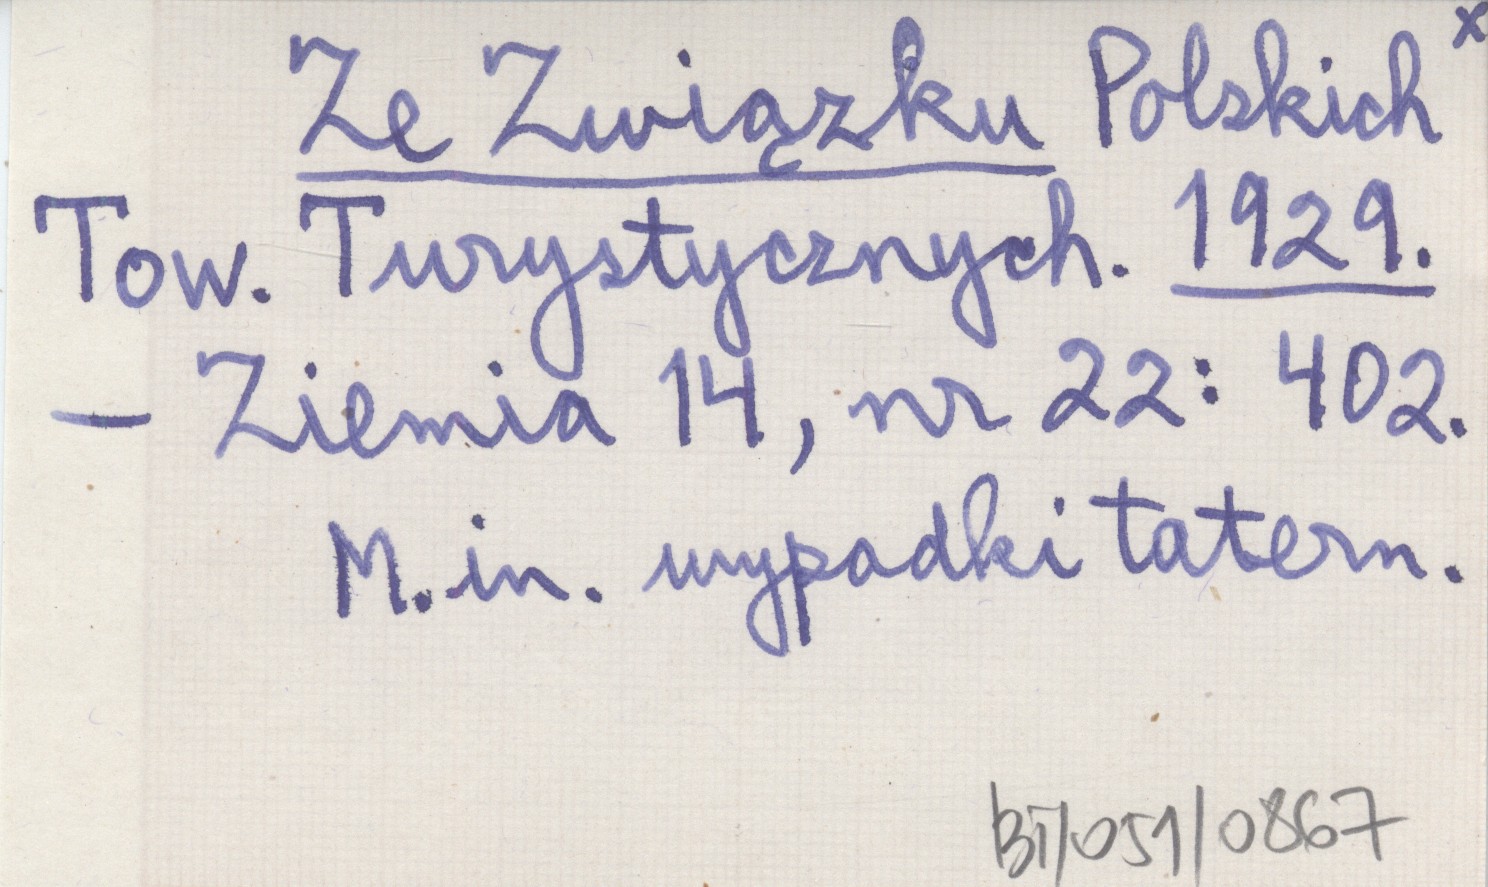 Ze Związku Polskich x
Tow. Turystycznych. 1929.
– Ziemia 14, nr 22: 402.
M. in. wypadki tatern.
BT/051/0867